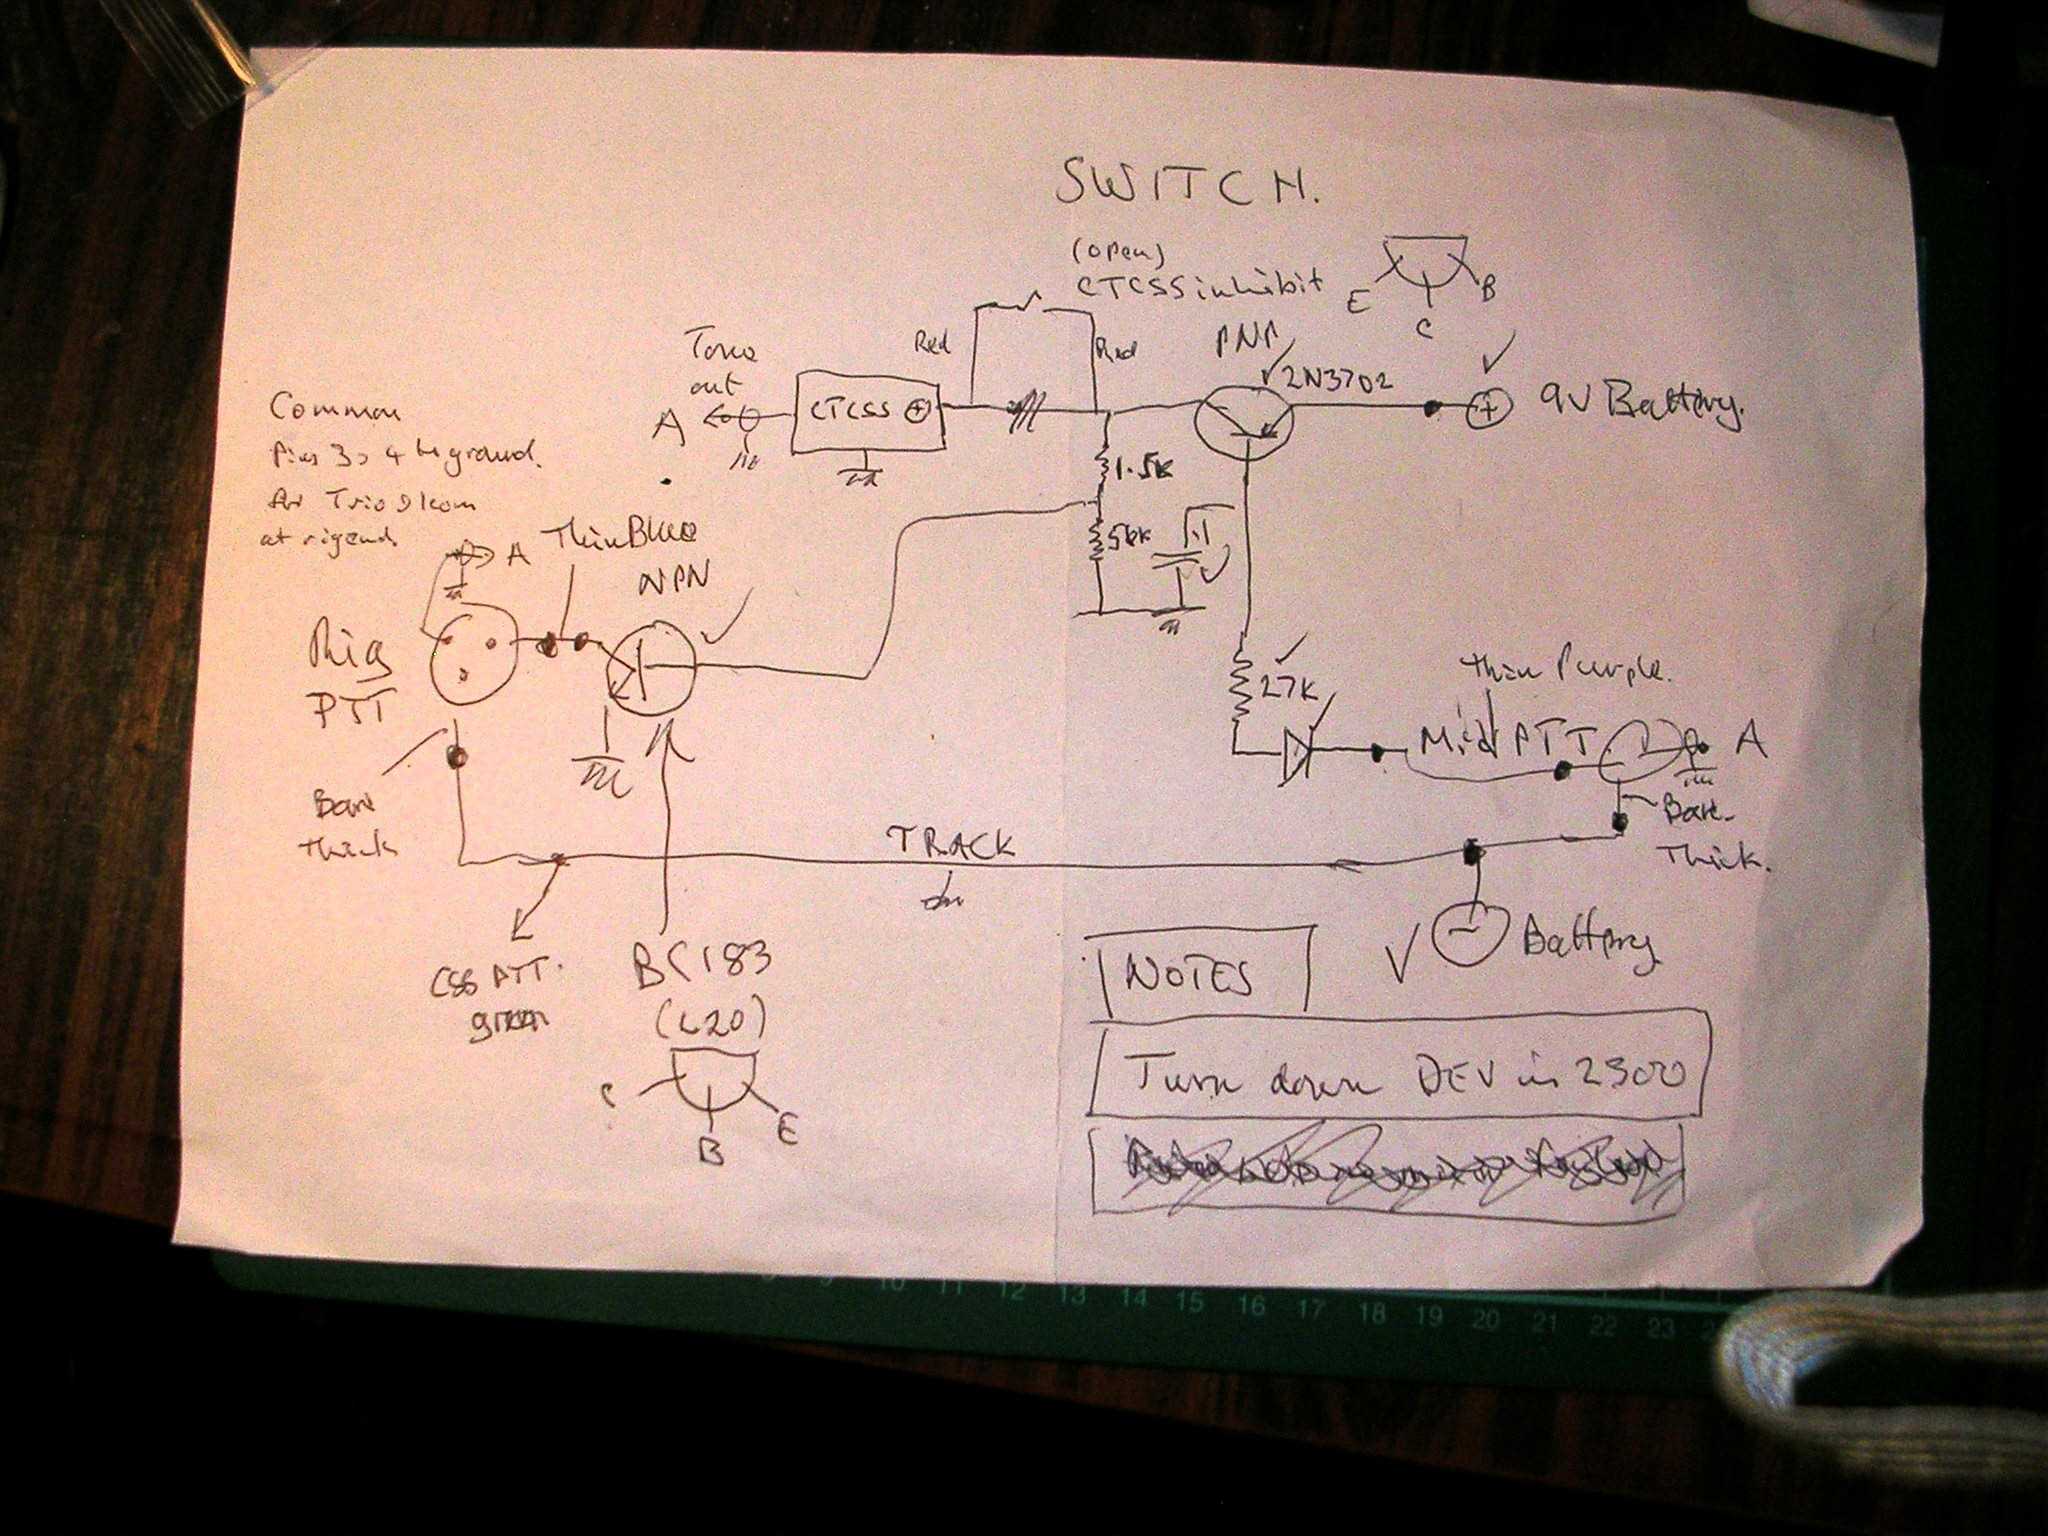 SWITCH.
(open)
CTCSS inhibit
E
C
B
Red
Red
PNP
2N3702
9V Battery.
+
Tone
out
A
CTCSS +
Common
Pins 3 > 4 to ground.
for Trio 9
at rig end
A
Thin Blue
NPN
1.5K
56K
.1
Rig
PTT
27K
thin Purple.
Mic PTT
A
Bare
thick
Bare
Thick.
TRACK
CSS PTT.
green
BC183
(L20)
C
B
E
-
Battery
NOTES
Turn down DEV in 2300
8 9 10 11 12 13 14 15 16 17 18 19 20 21 22 23